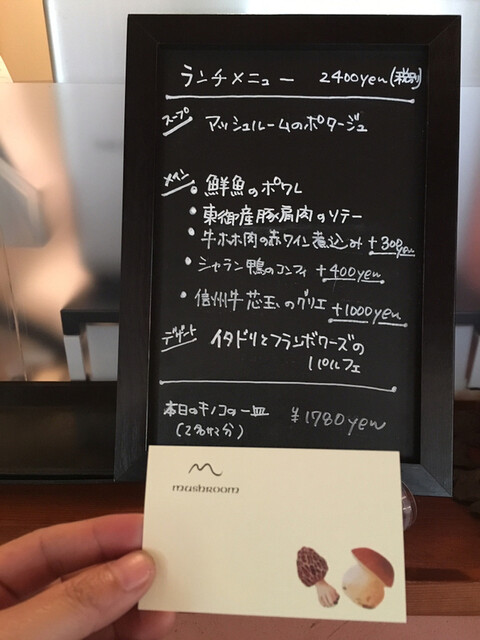 ランチメニュー 2400yen(税別)
スープ
マッシュルームのポタージュ
メイン
・鮮魚のポワレ
・東御産豚肩肉のソテー
・牛ホホ肉の赤ワイン煮込み +300yen
・シャラン鴨のコンフィ +400yen
・信州牛芯玉のグリエ +1000yen
デザート
イタドリとフランボワーズの
パルフェ
本日のキノコの一皿 ¥1780yen
(2名サマ分)
mushroom